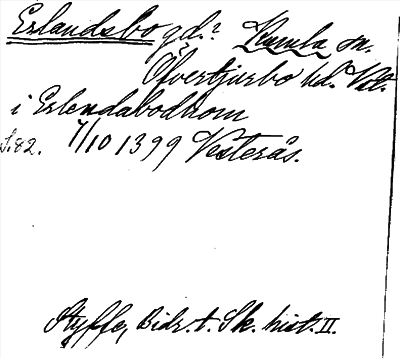 Erlandsbo gd.? Kumla sn.
Öfvertjurbo hd. Vstm.
i Erlendabodhom
S. 82. 7/10 1399 Vesterås.
Styffe, Bidr. t. Sk. hist. II.